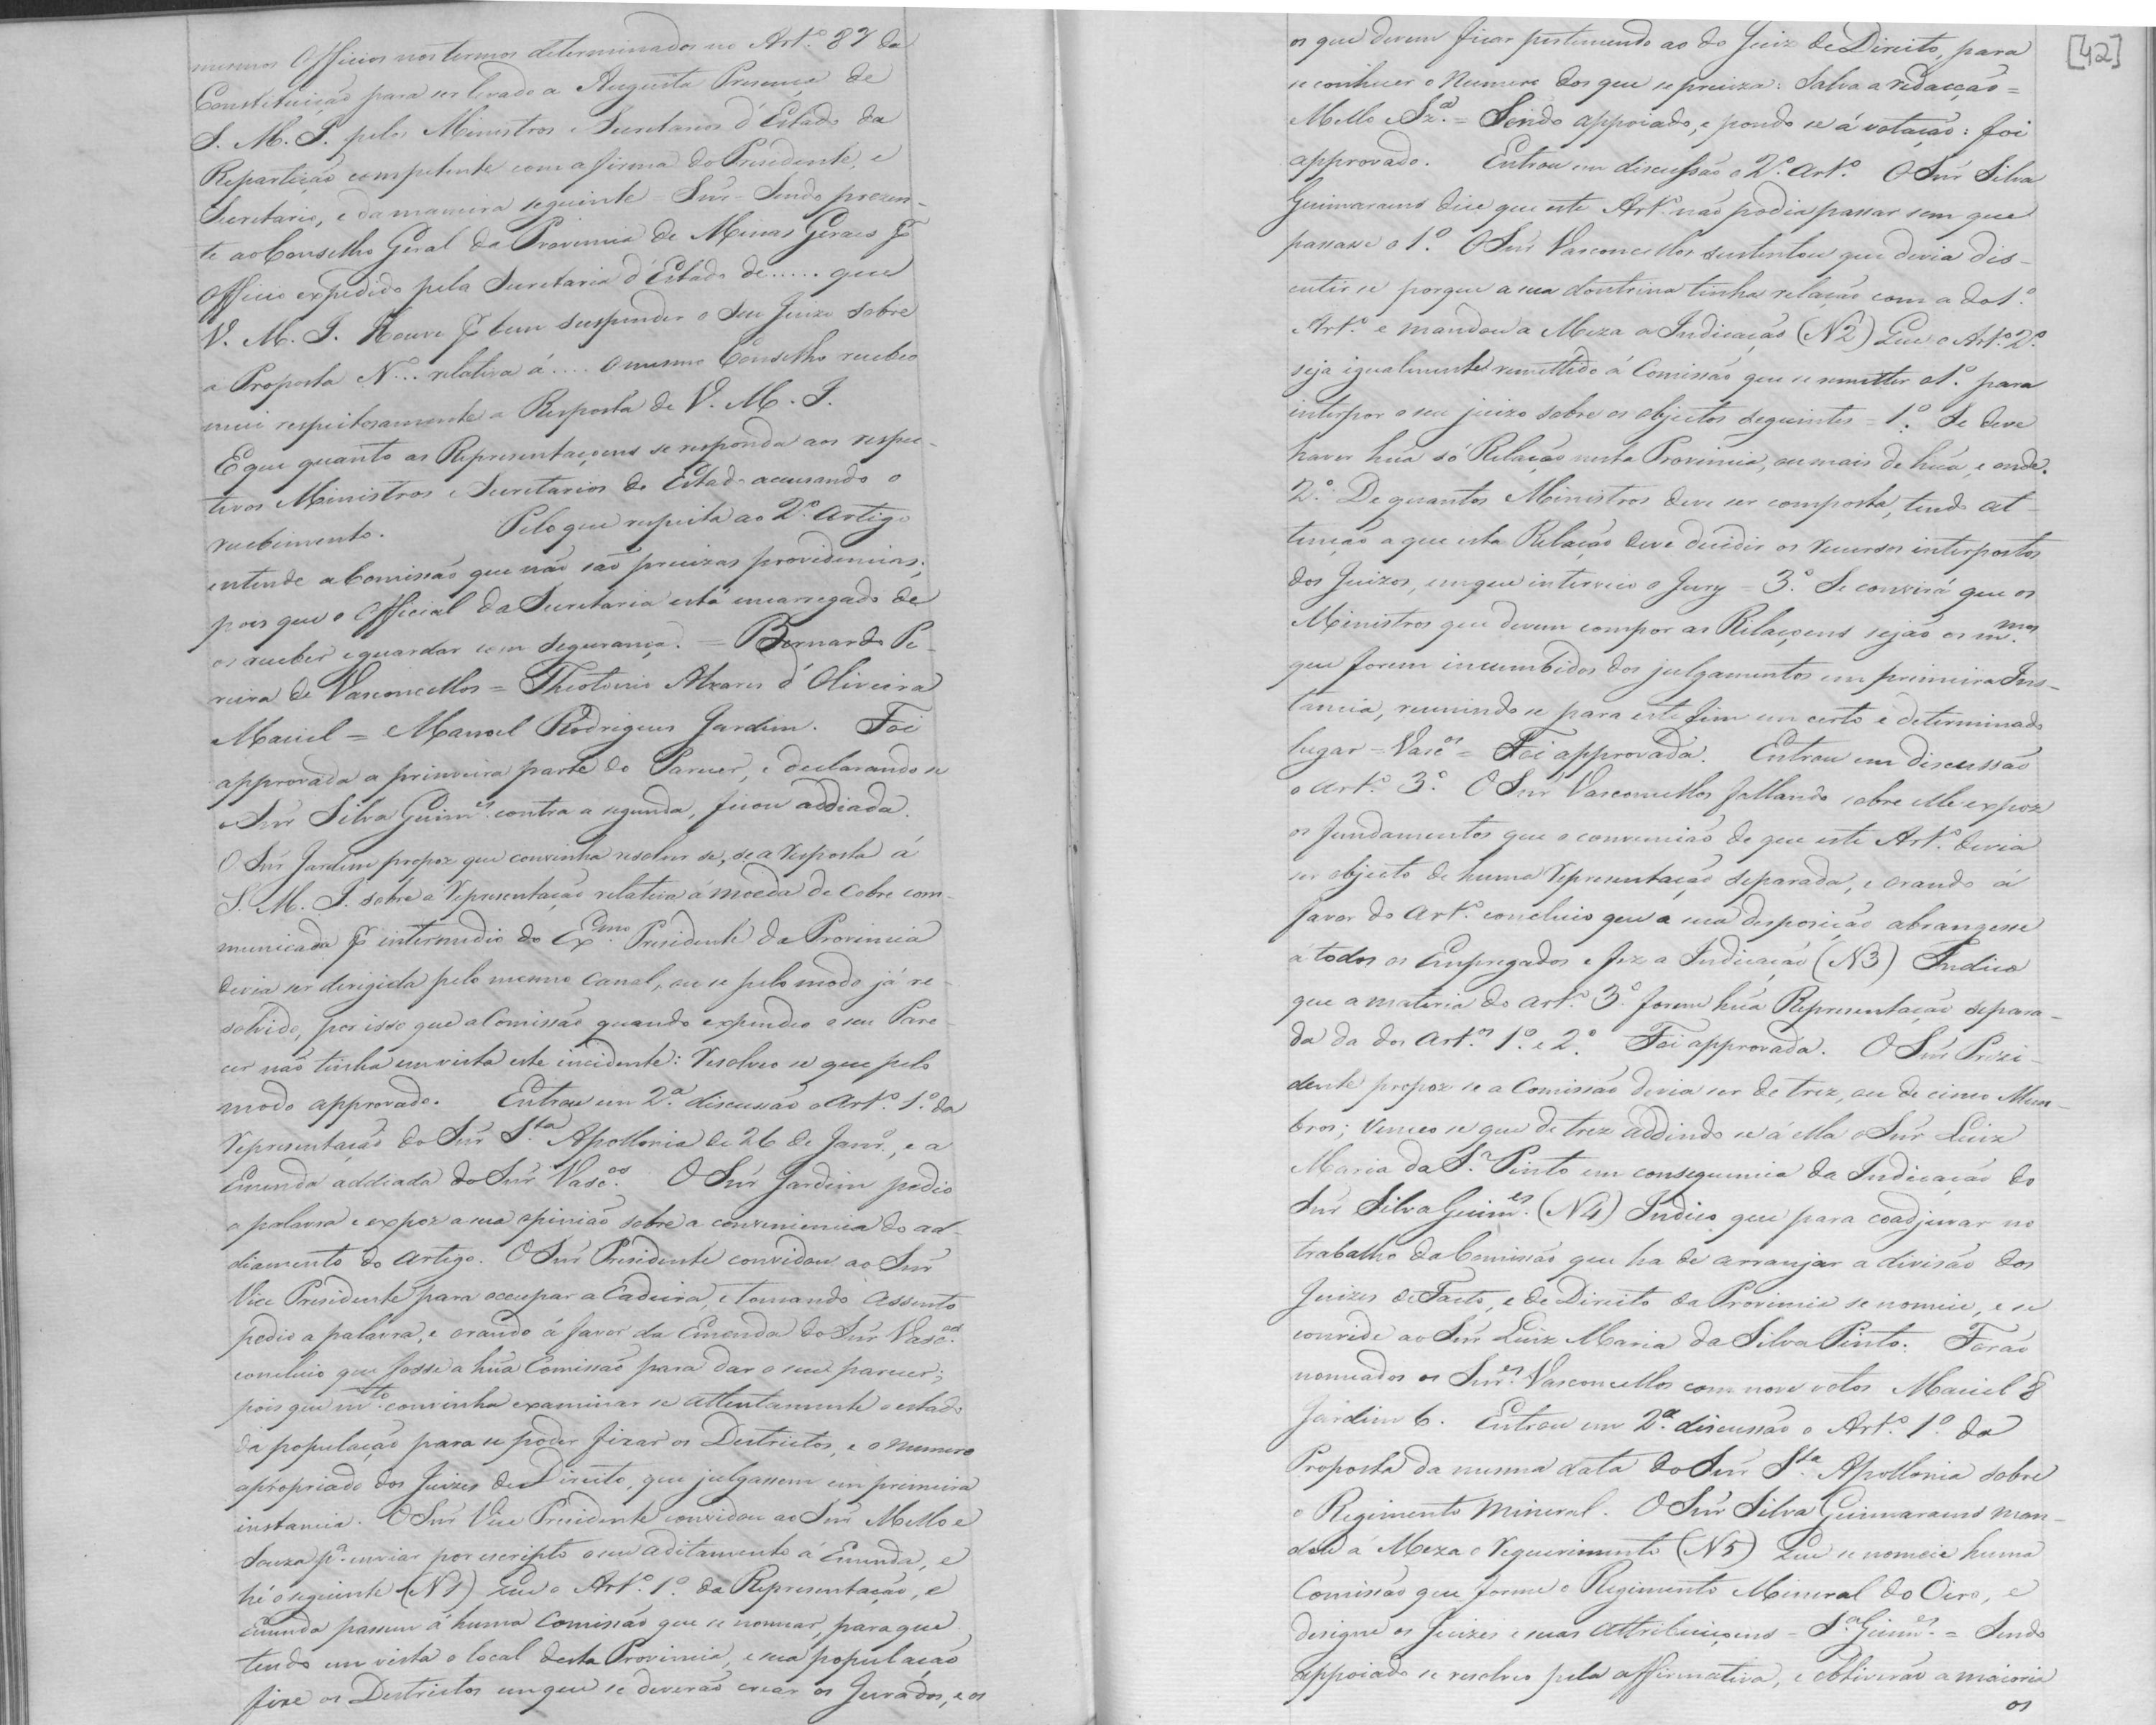 mesmos Officios nos termos determinados no Art.º 87 da
Constituição para ser levado a Augusta Presença de
S. M. I. pelos Ministros e Secretarios d'Estado da
Repartição competente com a firma do Presidente, e
Secretario, e da maneira seguinte = Snr = Sendo prezen-
te ao Conselho Geral da Provincia de Minas Geraes pr
Officio expedido pela Secretaria d'Estado de..... que
V. M. I. Houve pr bem suspender o Seu Juizo sobre
a Proposta N... relativa á.... o mesmo Conselho recebeo
mui respeitosamente a Resposta de V. M. I.
E que quanto as Representaçoens se responda aos respec-
tivos Ministros e Secretarios de Estado accusando o
recebimento. Pelo que respeita ao 2º Artigo
entende a Comissão que não são precizas providencias;
pois que o Official da Secretaria está encarregado de
os receber e guardar com segurança. = Bernardo Pe-
reira de Vasconcellos = Theotonio Alvares d'Oliveira
Maciel = Manoel Rodrigues Jardim. Foi
approvada a primeira parte do Parecer, e declarando se
o Snr Silva Guimes. contra a segunda, ficou addiada.
O Snr Jardim propoz que convinha resolver se, se a resposta á
S. M. I. sobre a Representação relativa á moeda de Cobre com-
municada pr intermedio do Exmo. Presidente da Provincia
devia ser dirigida pelo mesmo Canal, ou se pelo modo já re-
solvido, por isso que a Comissão quando expendeo o seu Pare-
cer não tinha em vista este incidente: Resolveo se que pelo
modo approvado. Entrou em 2.ª discussão o Art.º 1.º da
Representação do Snr Sta. Apollonia de 26 de Janrº, e a
Emenda addiada do Snr Vascos. O Snr Jardim pedio
a palavra e expoz a sua opinião sobre a conveniencia do ad-
diamento do Artigo. O Snr Presidente convidou ao Snr
Vice Presidente para occupar a Cadeira, e tomando assento
pedio a palavra, e orando á favor da Emenda do Snr Vascos.
concluio que fosse a hũa Comissão para dar o seu parecer;
pois que mto. convinha examinar se attentamente o estado
da população para se poder fixar os Destrictos, e o numero
apropriado dos Juizes de Direito, que julgassem em primeira
instancia. O Snr Vice Presidente convidou ao Snr Mello e
Souza pª. enviar por escripto o seu aditamento á Emenda, e
hé o seguinte (N 1) Que o Art.º 1.º da Representação, e
emenda passem á huma Comissão que se nomear, para que
tendo em vista o local desta Provincia, e sua população
fixe os Destrictos em que se deverão crear os Jurados, e os
[42]
os que devem ficar pertencendo ao do Juiz de Direito, para
se conhecer o Numero dos que se preciza: Salva a redacção =
Mello e Sza. = Sendo appoiado, e pondo se á votação: foi
approvado. Entrou em discussão o 2.º Art.º O Snr Silva
Guimaraens dice que este Art.º não podia passar sem que
passase o 1.º O Snr Vasconcellos sustentou que devia dis-
cutir se porque a sua doutrina tinha relação com a do 1.º
Art.º e mandou a Meza a Indicação (N 2) Que o Art.º 2.º
seja igualmente remettido á Comissão que se remetter o 1.º para
interpor o seu juizo sobre os objectos seguintes = 1.º Se deve
haver hũa só Relação nesta Provincia, ou mais de hũa, e onde.
2.º De quantos Ministros deve ser composta, tendo at-
tenção a que esta Relação deve decidir os recursos interpostos
dos Juizos, em que interveio o Jury = 3.º Se convirá que os
Ministros que devem compor as Relaçoens sejão os mmos.
que forem incumbidos dos julgamentos em primeira Ins-
tancia, reunindo se para este fim em certo e determinado
lugar = Vascos = Foi approvada. Entrou em discussão
o Art.º 3.º O Snr Vasconcellos fallando sobre elle expoz
os fundamentos que o convencião de que este Art.º devia
ser objecto de huma Representação separada, e orando á
favor do Art.º concluio que a sua disposição abrangesse
á todos os Empregados e fez a Indicação (N3) Indico
que a materia do Art.º 3.º forme hũa Representação separa-
da da dos Art.os 1.º e 2.º Foi approvada. O Snr Prezi-
dente propoz se a Comissão devia ser de trez, ou de cinco Mem-
bros; venceo se que de trez addindo se á ella o Snr Luiz
Maria da Sa. Pinto em consequencia da Indicação do
Snr Silva Guimes. (N4) Indico que para coadjuvar no
trabalho da Comissão que ha de arranjar a divisão dos
Juizes de Facto, e de Direito da Provincia se nomeie, e se
convide ao Snr Luiz Maria da Silva Pinto. Forão
nomeados os Snres. Vasconcellos com nove votos Maciel 8
Jardim 6. Entrou em 2.ª discussão o Art.º 1.º da
Proposta da mesma data do Snr Sta. Apollonia sobre
o Regimento Mineral. O Snr Silva Guimaraens man-
dou á Meza o Requerimento (N 5) Que se nomeie huma
Comissão que forme o Regimento Mineral do Oiro, e
designe os Juizes e suas Attribuiçoens = Sa. Guimes. = Sendo
appoiado se resolveo pela affirmativa, e obtiverão a maioria
os